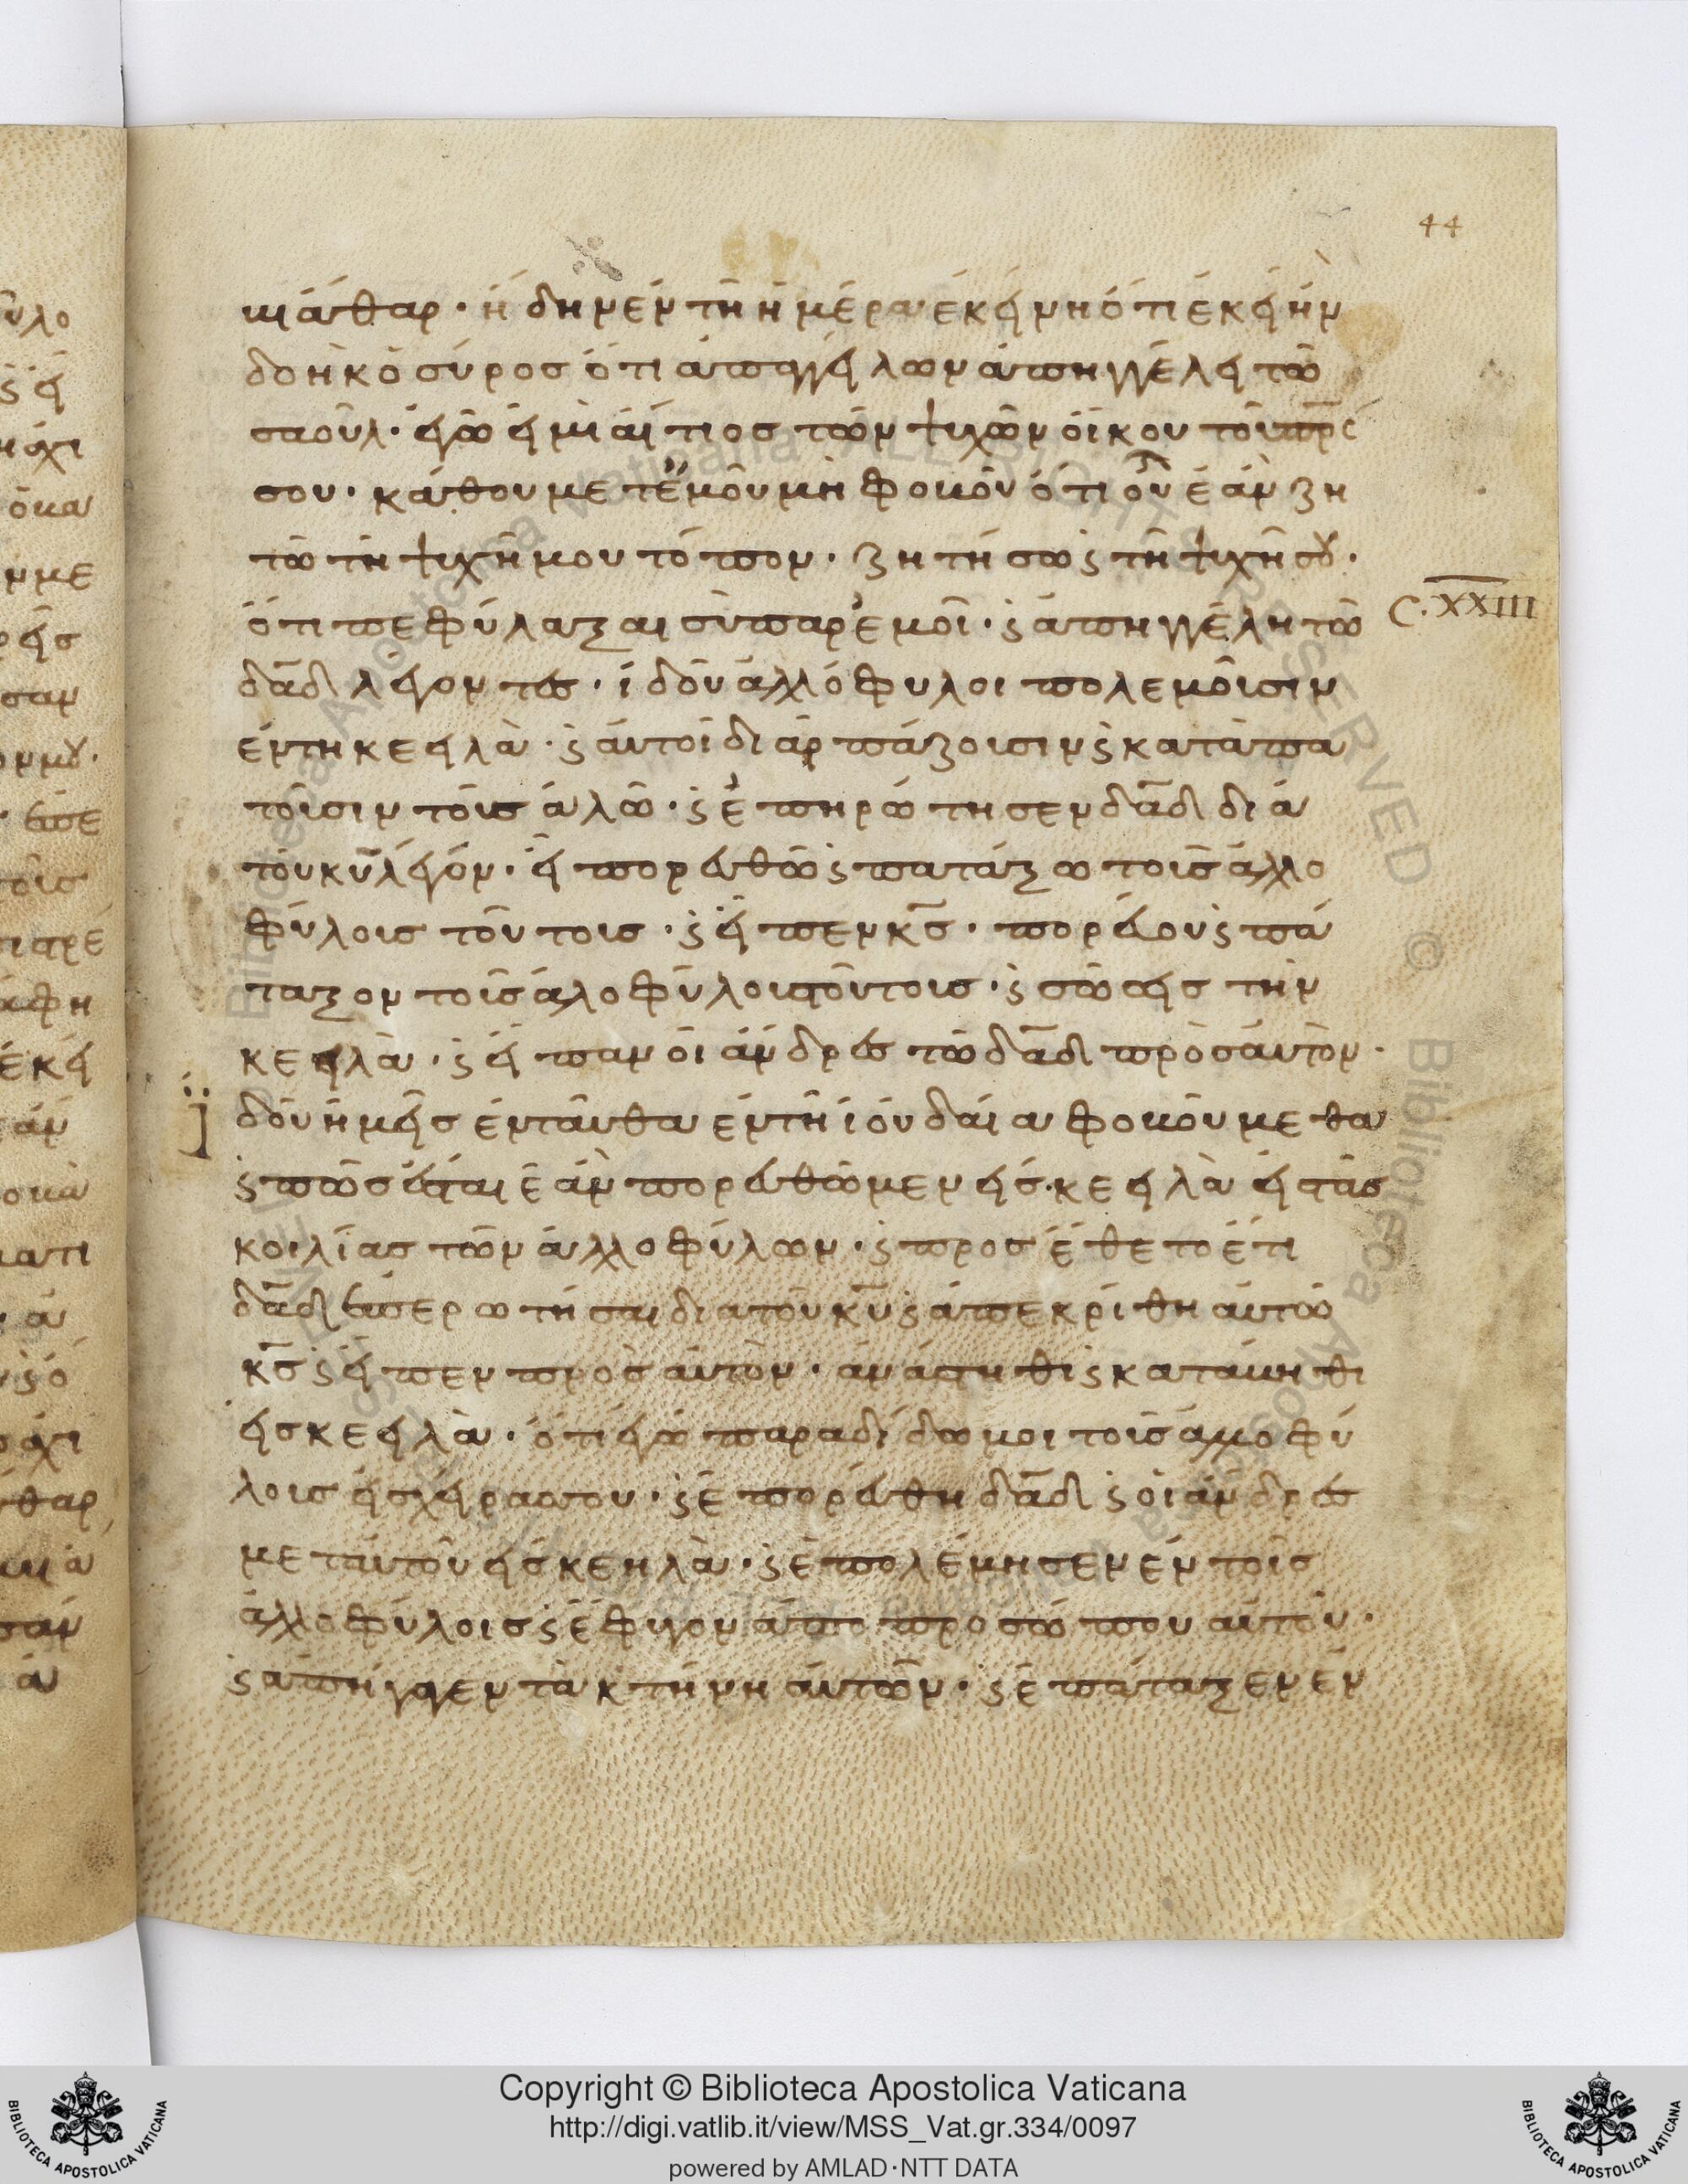 44
βιάθαρ· ἤδην ἐν τῆ ἡμέρα ἐκείνη ὅτι ἐκεῖ ἦν
δοὴκ ὁ σύροσ ὅτι ἀπαγγέλων ἀπηγγέλει τῶ
σαοῦλ· ἐγῶ εἰμὶ αἴτιοσ τῶν ψυχῶν οἴκου τοῦ πρ̅ς
σου· κάθου μετ᾽ἐμοῦ μὴ φοβοῦ ὅτι οὗ ἐὰν ζη
τῶ τῆ ψυχῆ μου τόπον· ζητήσω ϛ τῆ ψυχῆ σȣ·
ὅτι πεφύλαξαι σὺ παρ᾽ἐμοῖ· ϛ ἀπηγγέλη τῶ
C. XXIII
δα̅δ λέγοντεσ· ἰδοῦ ἀλλόφυλοι πολεμοῖσιν
ἐν τη κεειλὰ· ϛ ἀυτοὶ διαρπάζοισιν ϛ καταπα
τοῖσιν τοὺσ ἁλῶ· ϛ ἐπηρώτησεν δα̅δ διά
τοῦ κυ̅ λέγόν· εἶ πορευθῶ ϛ πατάξω τοῖσ ἀλλο
φύλοισ τοῦτοισ· ϛ εἶπεν κσ̅· πορεύου ϛ πά
ταξον τοῖσ ἀλοφύλοισ τοῦτοισ· ϛ σώσεισ τὴν
κεειλὰ· ϛ εἶπαν οἱ ἄνδρεσ τῶ δα̅δ πρὸσ ἀυτὸν·
ϊ δοῦ ἡμεῖσ ἐνταῦθα ἐν τῆ ἰουδαία φοβοῦμεθα
ϛ πῶσ ἔσται ἐὰν πορευθῶμεν εἰσ κεειλὰ εἰ τὰσ
κοιλίασ τῶν ἀλλοφύλων· ϛ προσέθετο ἔτι
δα̅δ ἐπερωτήσαι δια τοῦ κυ̅ ϛ ἀπεκρίθη ἀυτῶ
κσ̅ ϛ εἶπεν προσ ἀυτὸν· ἀνάστηθι ϛ κατάβηθι
εἰσ κεειλὰ· ὅτι ἐγῶ παραδίδωμοι τοῖσ ἀλλοφύ
λοισ εἰσ χεῖρασ σου· ϛ ἐπορεύθη δα̅δ ϛ οἱ ἄνδρεσ
μετ ἀυτοῦ εἰσ κεηλὰ· ϛ ἐπολέμησεν ἐν τοῖσ
ἀλλοφύλοισ ϛ ἔφυγον ἀπο προσώπου ἀυτοῦ·
ϛ ἀπήγαγεν τὰ κτήνη ἀυτῶν· ϛ ἐπάταξεν ἐν
Copyright © Biblioteca Apostolica Vaticana
http://digi.vatlib.it/view/MSS_Vat.gr.334/0097
powered by AMLAD·NTT DATA
BIBLIOTECA APOSTOLICA VATICANA
BIBLIOTECA APOSTOLICA VATICANA